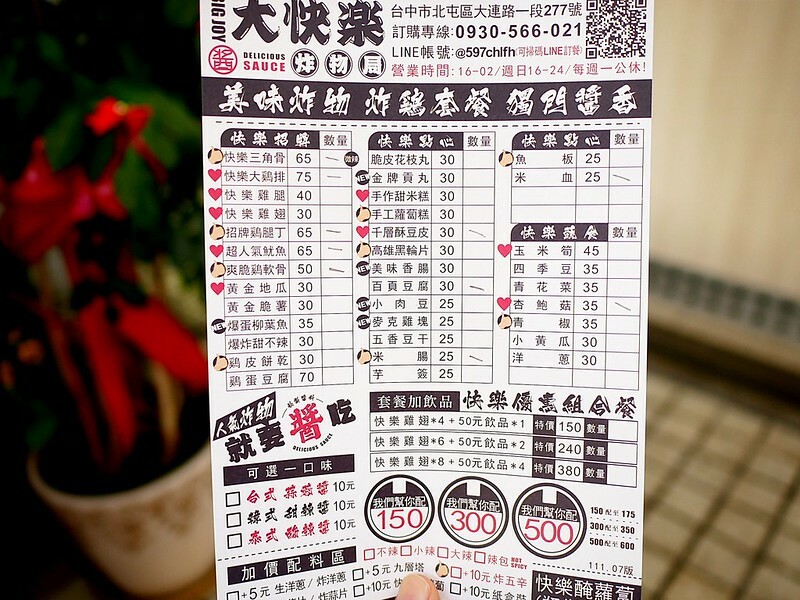 BIG JOY
大快樂
醬 DELICIOUS SAUCE 炸物局
台中市北屯區大連路一段277號
訂購專線:0930-566-021
LINE帳號:@597chlfh(可掃碼LINE訂餐)
營業時間:16-02/週日16-24/每週一公休!
美味炸物 炸鷄套餐 獨門醬香
快樂招牌 數量
快樂三角骨 65 微辣
快樂大鷄排 75
快樂雞腿 40
快樂雞翅 30
招牌鷄腿丁 65
超人氣魷魚 65
爽脆鷄軟骨 50
黃金地瓜 30
黃金脆薯 30
NEW 爆蛋柳葉魚 35
爆炸甜不辣 30
鷄皮餅乾 30
鷄蛋豆腐 70
快樂點心 數量
脆皮花枝丸 30
NEW 金牌貢丸 30
手作甜米糕 30
手工蘿蔔糕 30
千層酥豆皮 30
高雄黑輪片 30
NEW 美味香腸 30
百頁豆腐 30
NEW 小肉豆 25
NEW 麥克雞塊 25
五香豆干 25
米腸 25
芋簽 25
快樂點心 數量
魚板 25
米血 25
快樂蔬食 數量
玉米筍 45
四季豆 35
青花菜 35
杏鮑菇 35
青椒 35
小黃瓜 30
洋蔥 30
人氣炸物
就要醬吃
DELICIOUS SAUCE
可選一口味
台式蒜蓉醬 10元
韓式甜辣醬 10元
泰式酸辣醬 10元
套餐加飲品 快樂優惠組合餐
快樂雞翅*4+50元飲品*1 特價 150 數量
快樂雞翅*6+50元飲品*2 特價 240 數量
快樂雞翅*8+50元飲品*4 特價 380 數量
我們幫你配 150
我們幫你配 300
我們幫你配 500
150 配至 175
300 配至 350
500 配至 600
111.07版
加價配料區
不辣 小辣 大辣 辣包 HOT SPICY
+5元 生洋蔥/炸洋蔥
+5元 九層塔
+10元 炸五辛
炸蒜片
+10元
+10元 紙盒裝
快樂醃蘿蔔